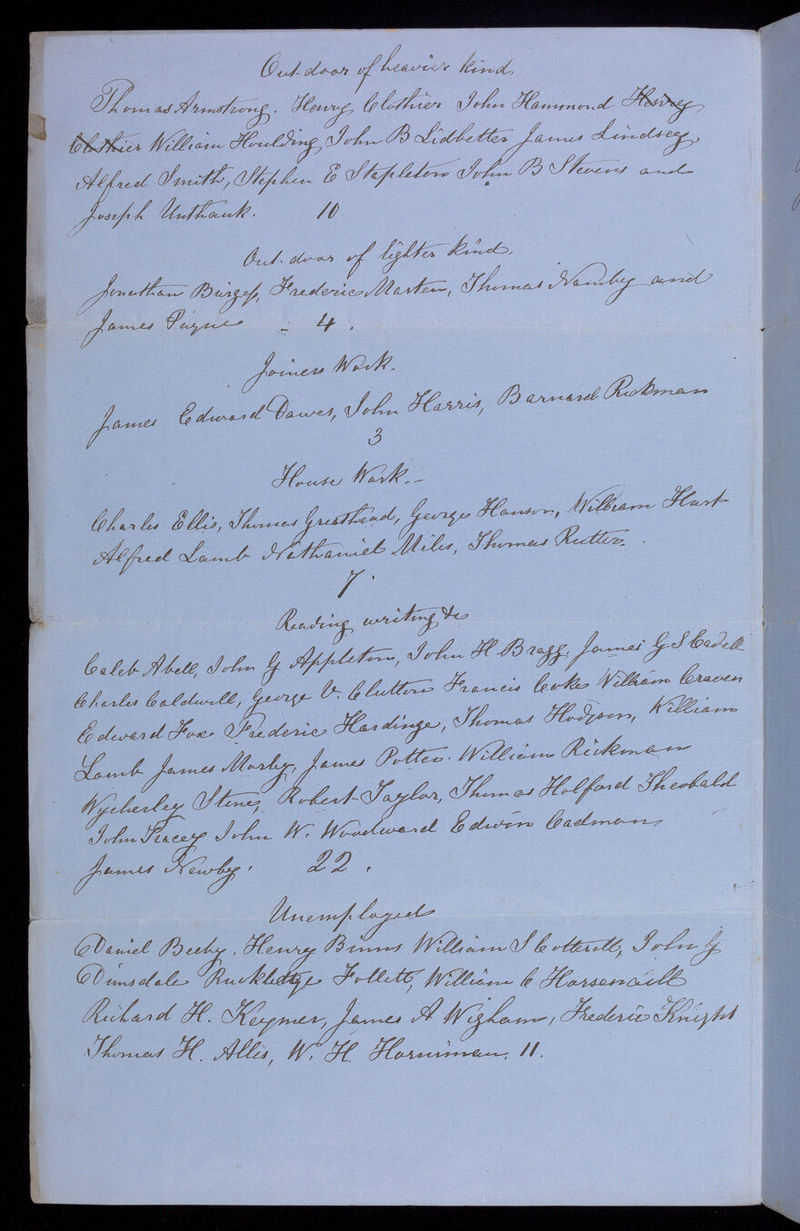 Out-door of heavier kind
Thomas Armstrong. Henry Clothier John Hammond Henry
Clothier William Houlding, John B Lidbetter James Lindsey,
Alfred Smith, Stephen E Stapleton John B Stevens and
Joseph Unthank. 10
Out-door of lighter kind.
Jonathan Burgess, Frederic Marten, Thomas Namby and
James Payne - 4.
Joiners Work.
James Edward Dawes, John Harris, Barnard Rickman
3
House Work.-
Charles Ellis, Thomas Greathead, George Hanson, William Hart
Alfred Lamb Nathaniel Miles, Thomas Rutter.
7.
Reading writing &c
Caleb Abell, John G Appleton, John H Bragg. James G S Cadell
Charles Caldwell, George V. Clutton Francis Coke William Craven
Edward Fox Frederic Hardinge, Thomas Hodgson, William
Lamb James Morby, James Potter. William Rickman
Wycherley Stone, Robert Taylor, Thomas Holford Theobald
John Tracey John W. Woodward Edwin Cadman
James Newby. 22.
Unemployed
Daniel Beeby. Henry Binns William S Cotterell, John G
Dimsdale Follett, William C Horsenaill
Richard H. Keymer, James A Wigham, Frederic Knight
Thomas H. Allis, W. H. Horniman, 11.